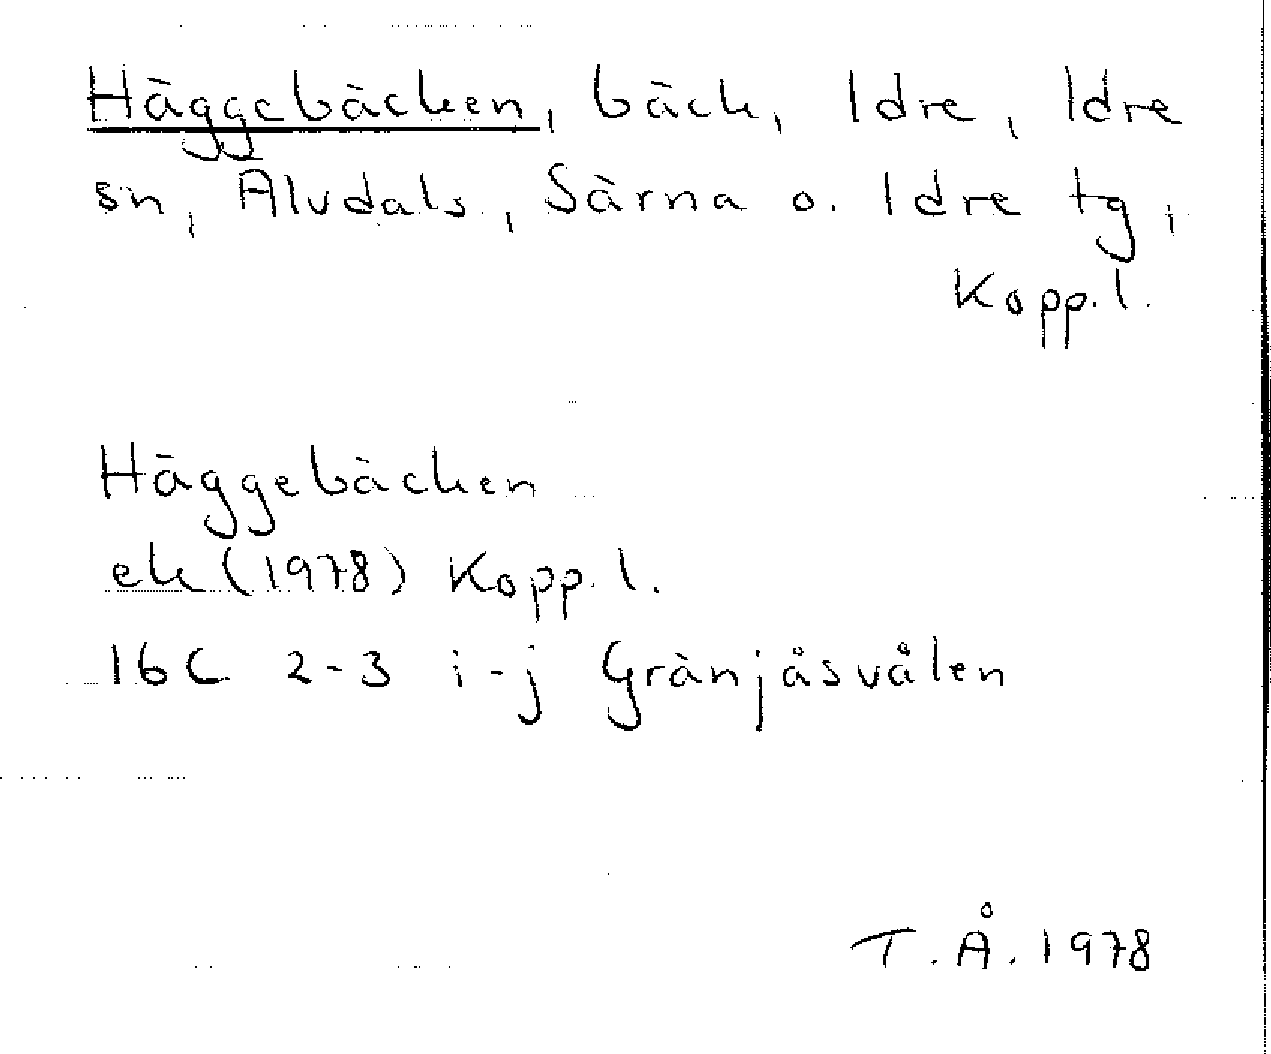 Häggebäcken, bäck, Idre, Idre
sn, Älvdals, Särna o. Idre tg,
Kopp.l.
Häggebäcken
ek (1978) Kopp.l.
16C 2-3 i-j Gränjåsvålen
T.Å. 1978